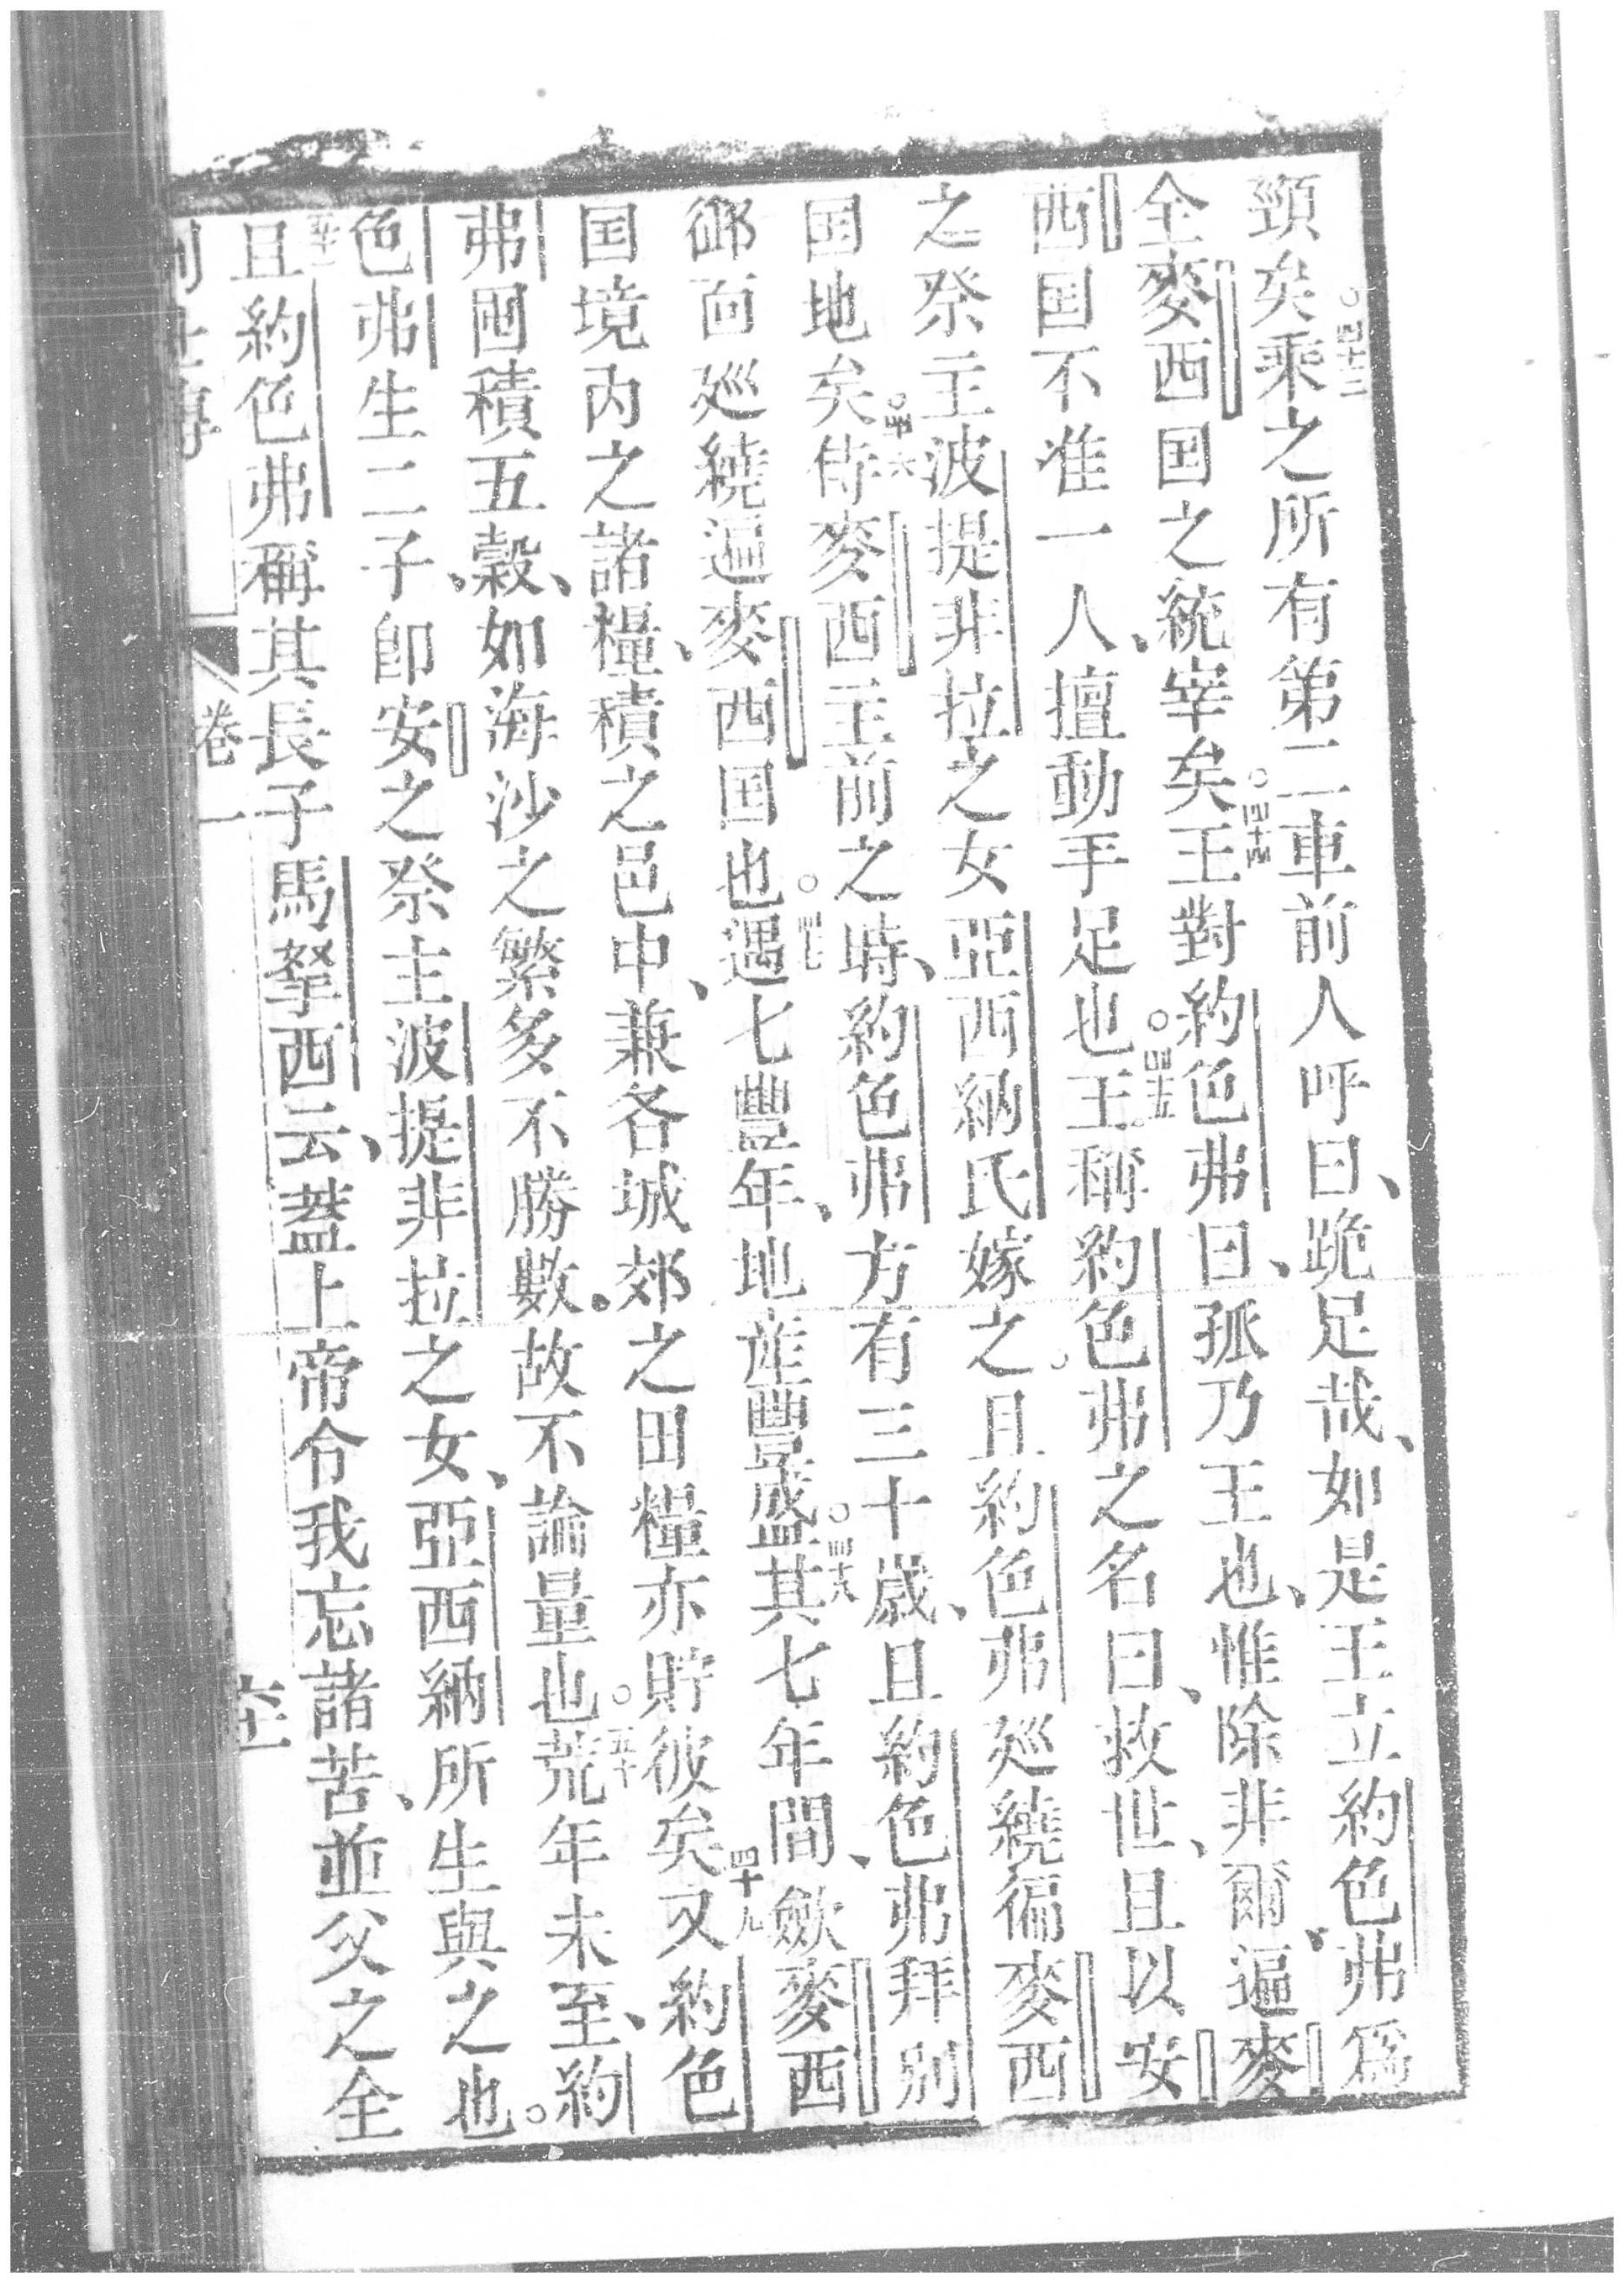 頸矣○四十三乘之所有第二車前人呼曰、跪足哉、如是王立約色弗為
全麥西国之統宰矣○四十四王對約色弗曰、孤乃王也、惟除非爾、遍麥
西国不准一人、擅動手足也○四十五王稱約色弗之名曰、救世、且以安
之祭主波提非拉之女亞西納氏嫁之。且約色弗廵繞徧麥西
国地矣○四十六侍麥西王前之時、約色弗方有三十歲、且約色弗拜別
御面廵繞遍麥西国也○四十七遇七豐年、地產豐盛○四十八其七年間、斂麥西
国境内之諸糧、積之邑中、兼各城郊之田糧亦貯彼矣四十九又約色
弗囤積五穀、如海沙之繁多不勝數。故不論量也○五十荒年未至、約
色弗生二子、即安之祭主波提非拉之女、亞西納所生與之也。
五十一且約色弗稱其長子馬拏西云、蓋上帝令我忘諸苦、並父之全
卷一